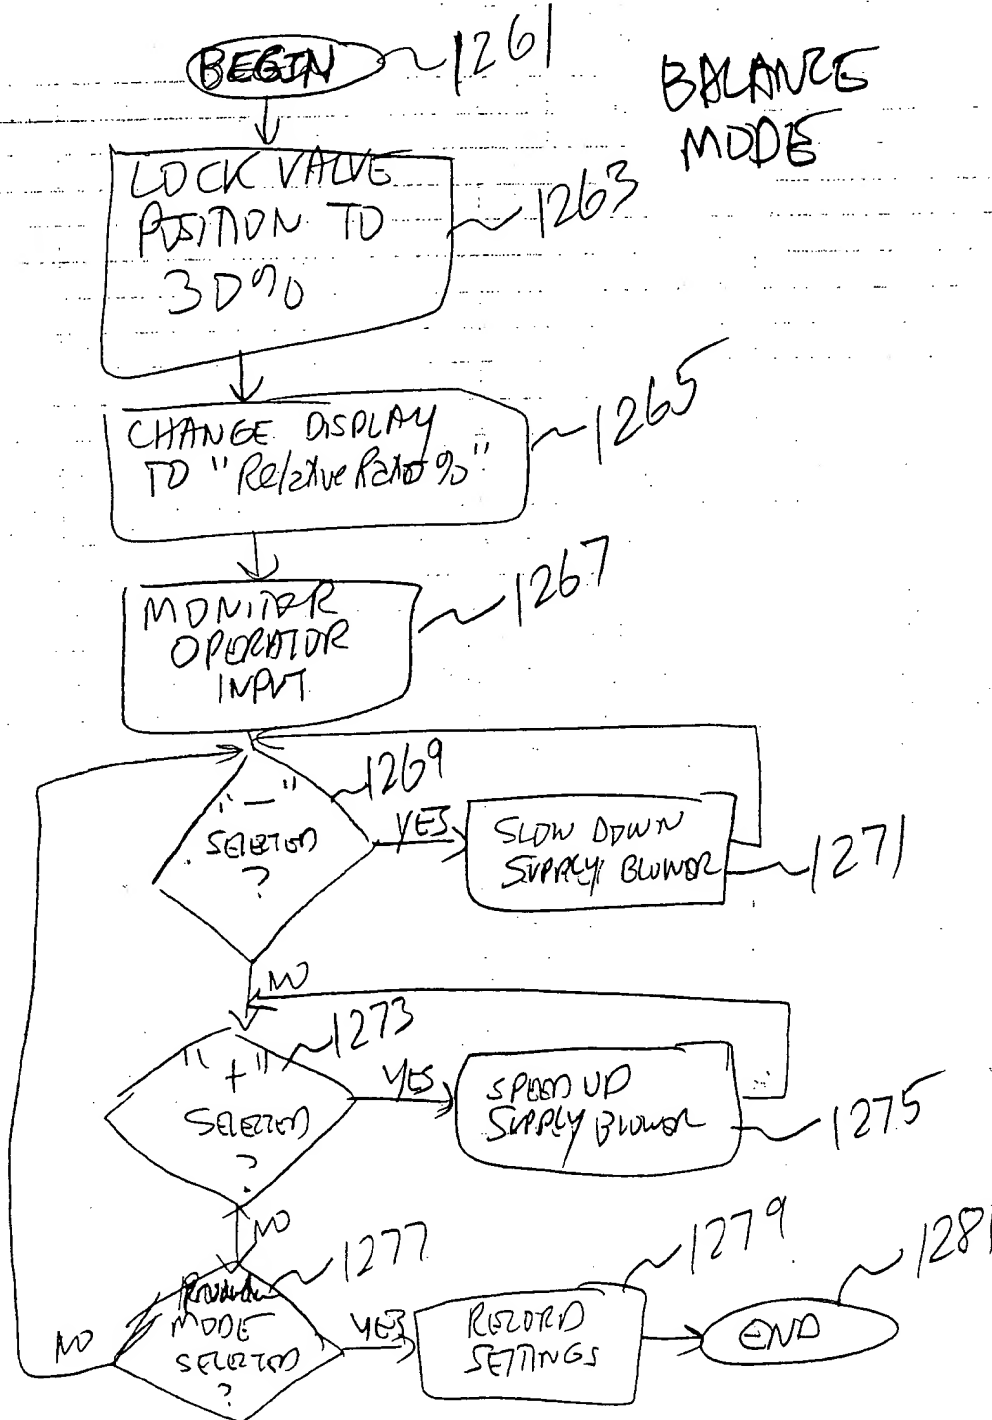 BEGIN
1261
BALANCE
MODE
LOCK VALVE
POSITION TO
30%
1263
CHANGE DISPLAY
TO "Relative Ratio %"
1265
MONITOR
OPERATOR
INPUT
1267
"—"
SELECTED
?
1269
YES
SLOW DOWN
SUPPLY BLOWER
1271
NO
"+"
SELECTED
?
1273
YES
SPEED UP
SUPPLY BLOWER
1275
NO
MODE
SELECTED
?
1277
NO
YES
RECORD
SETTINGS
1279
END
1281